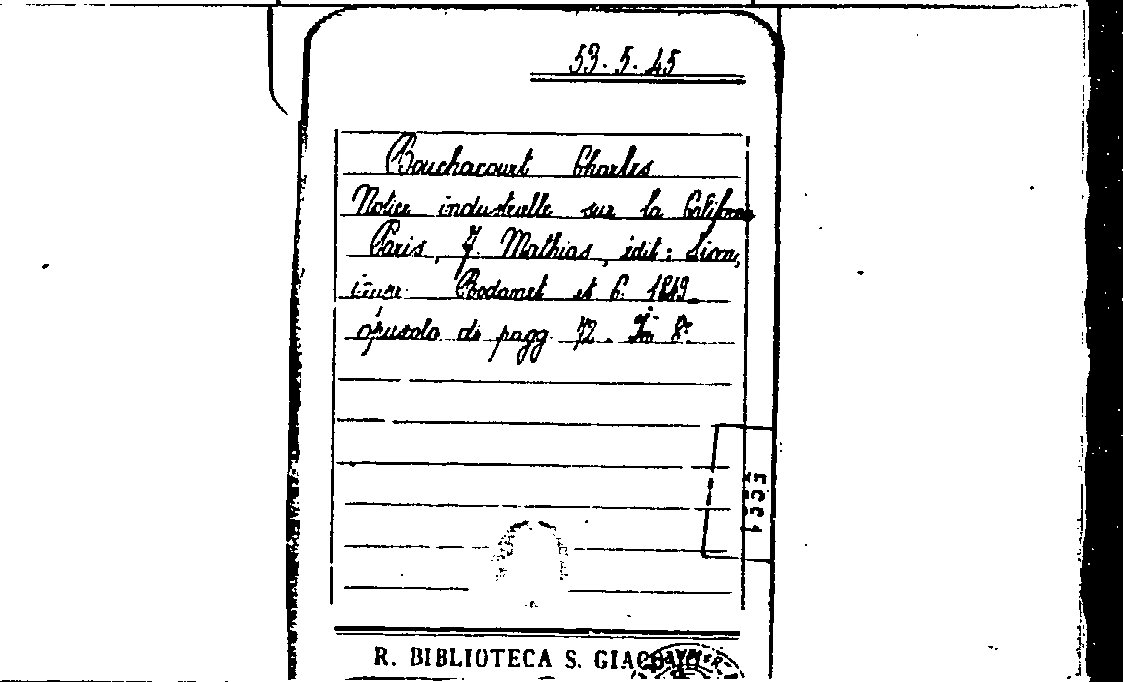 53. 5. 45
Bouchacourt Charles
Notice industrielle sur la Californ
Paris, J. Mathias, édit: Lion,
Bodanet et C. 1849
opuscolo di pagg 72. In 8°
R. BIBLIOTECA S. GIACOMO